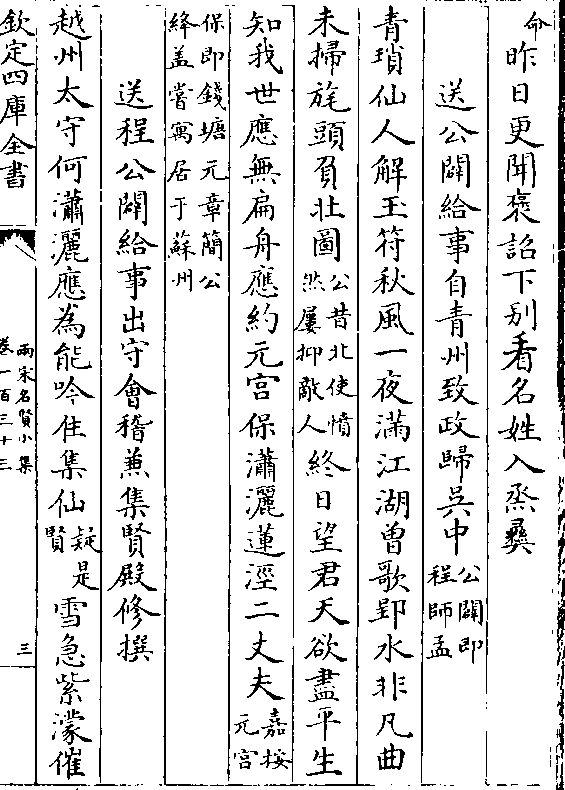 命昨日更聞褒詔下别看名姓入烝彝
送公闢給事自青州致政歸吳中公闢即程師孟
青瑣仙人解玉符秋風一夜滿江湖曾歌郢水非凡曲
未掃旄頭負壯圖公昔北使憤然屢抑敵人終日望君天欲盡平生
知我世應無扁舟應約元宫保瀟灑蓮涇二丈夫嘉按元宫
保即錢塘元章簡公絳盖嘗寓居于蘇州
送程公闢給事出守會稽兼集賢殿修撰
越州太守何瀟灑應為能吟住集仙疑是賢雪急紫濛催
欽定四庫全書
兩宋名賢小集
卷一百三十三
三